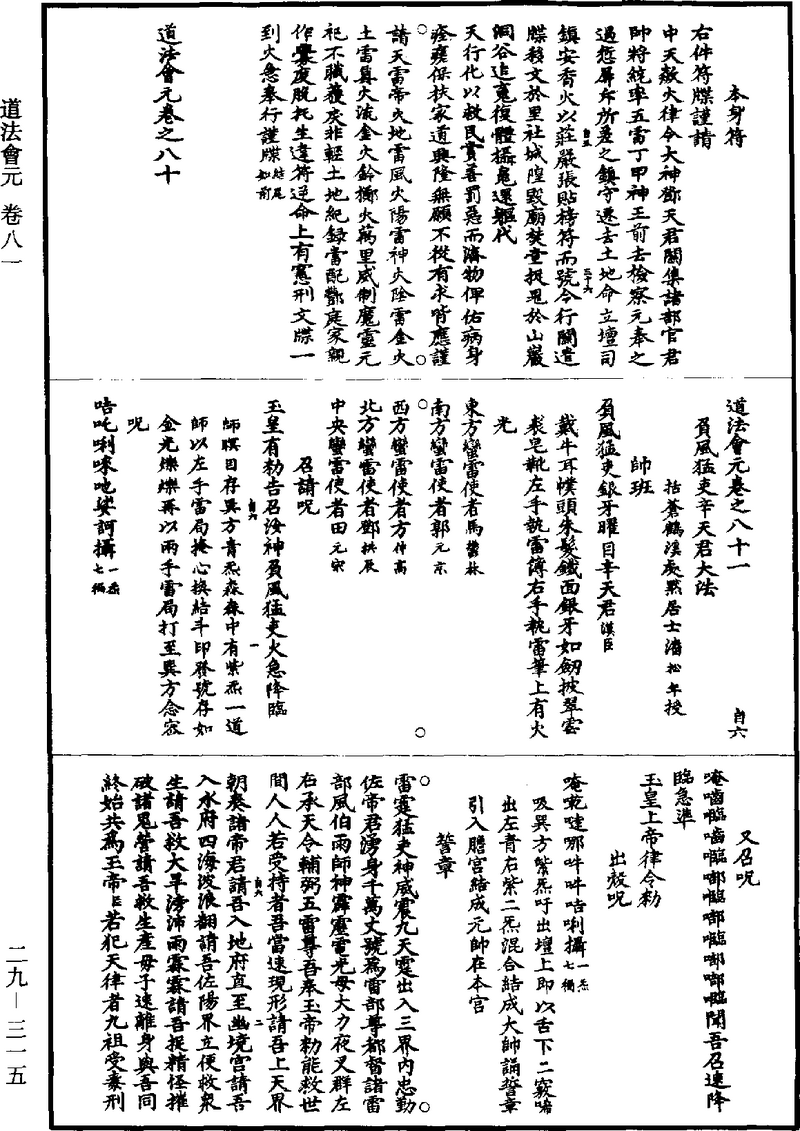 道法會元 卷八一
二九－三一五
本身符
右件符牒謹請
中天敕火律令大神鄧天君關集諸部官君
帥將統率五雷丁甲神王前去檢察元奉之
過愆屏斥所差之鎮守遷去土地命立壇司
鎮安香火以莊嚴張貼榜符而號令行關遣
牒移文於里社城隍毀廟焚壹捉鬼於山巖
洞谷追魂復體攝鬼還軀代
天行化以救民賞善罰惡而濟物俾佑病身
痊瘥保扶家道興隆無願不從有求皆應謹
請天雷帝火地雷風火陽雷神火陰雷金火
土雷真火流金火鈴擲火萬里威制魔靈元
祀不職獲戾非輕土地紀錄當配酆庭家親
作釁度脫托生違符逆命上有憲刑文牒一
到火急奉行謹牒結尾如前
道法會元卷之八十
道法會元卷之八十一
自六
負風猛吏辛天君大法
括蒼鶴溪處黙居士潘松年授
帥班
負風猛吏銀牙曜目辛天君漢臣
戴牛耳幞頭朱髮鐵面銀牙如劒披翠雲
裘皂靴左手執雷簿右手執雷筆上有火
光
東方蠻雷使者馬鬱林
南方蠻雷使者郭元京
西方蠻雷使者方仲高
北方蠻雷使者鄧拱辰
中央蠻雷使者田元宗
召請呪
玉皇有勑告召汝神負風猛吏火急降臨
師瞑目存巽方青炁森森中有紫炁一道
師以左手雷局掩心換結斗印發號存如
金光爍爍再以兩手雷局打至巽方念密
呪
唶吒唎㗚吔娑訶攝一炁七徧
又召呪
唵嚙臨嚙臨啷臨啷臨啷啷臨聞吾召速降
臨急準
玉皇上帝律令勑
出殼呪
唵乾噠哪吽吽咭唎攝一炁七徧
吸巽方紫炁吁出壇上即以舌下二竅啼
出左青右紫二炁混合結成大帥誦誓章
引入膻宮結成元帥在本宮
誓章
雷霆猛吏神威震九天霆出入三界內忠勤
佐帝君湧身千萬丈號為雷部尊都督諸雷
部風伯雨師神霹靂雷光母大力夜叉群左
右承天令輔弼五雷尊吾奉玉帝勑能救世
間人人若受持者吾當速現形請吾上天界
朝奏諸帝君請吾入地府直至幽境宮請吾
入水府四海波浪翻請吾佐陽界立便救衆
生請吾救大旱滂沛雨霖霖請吾捉精怪摧
破諸鬼營請吾救生產母子速離身與吾同
終始共為玉帝臣若犯天律者九祖受毒刑